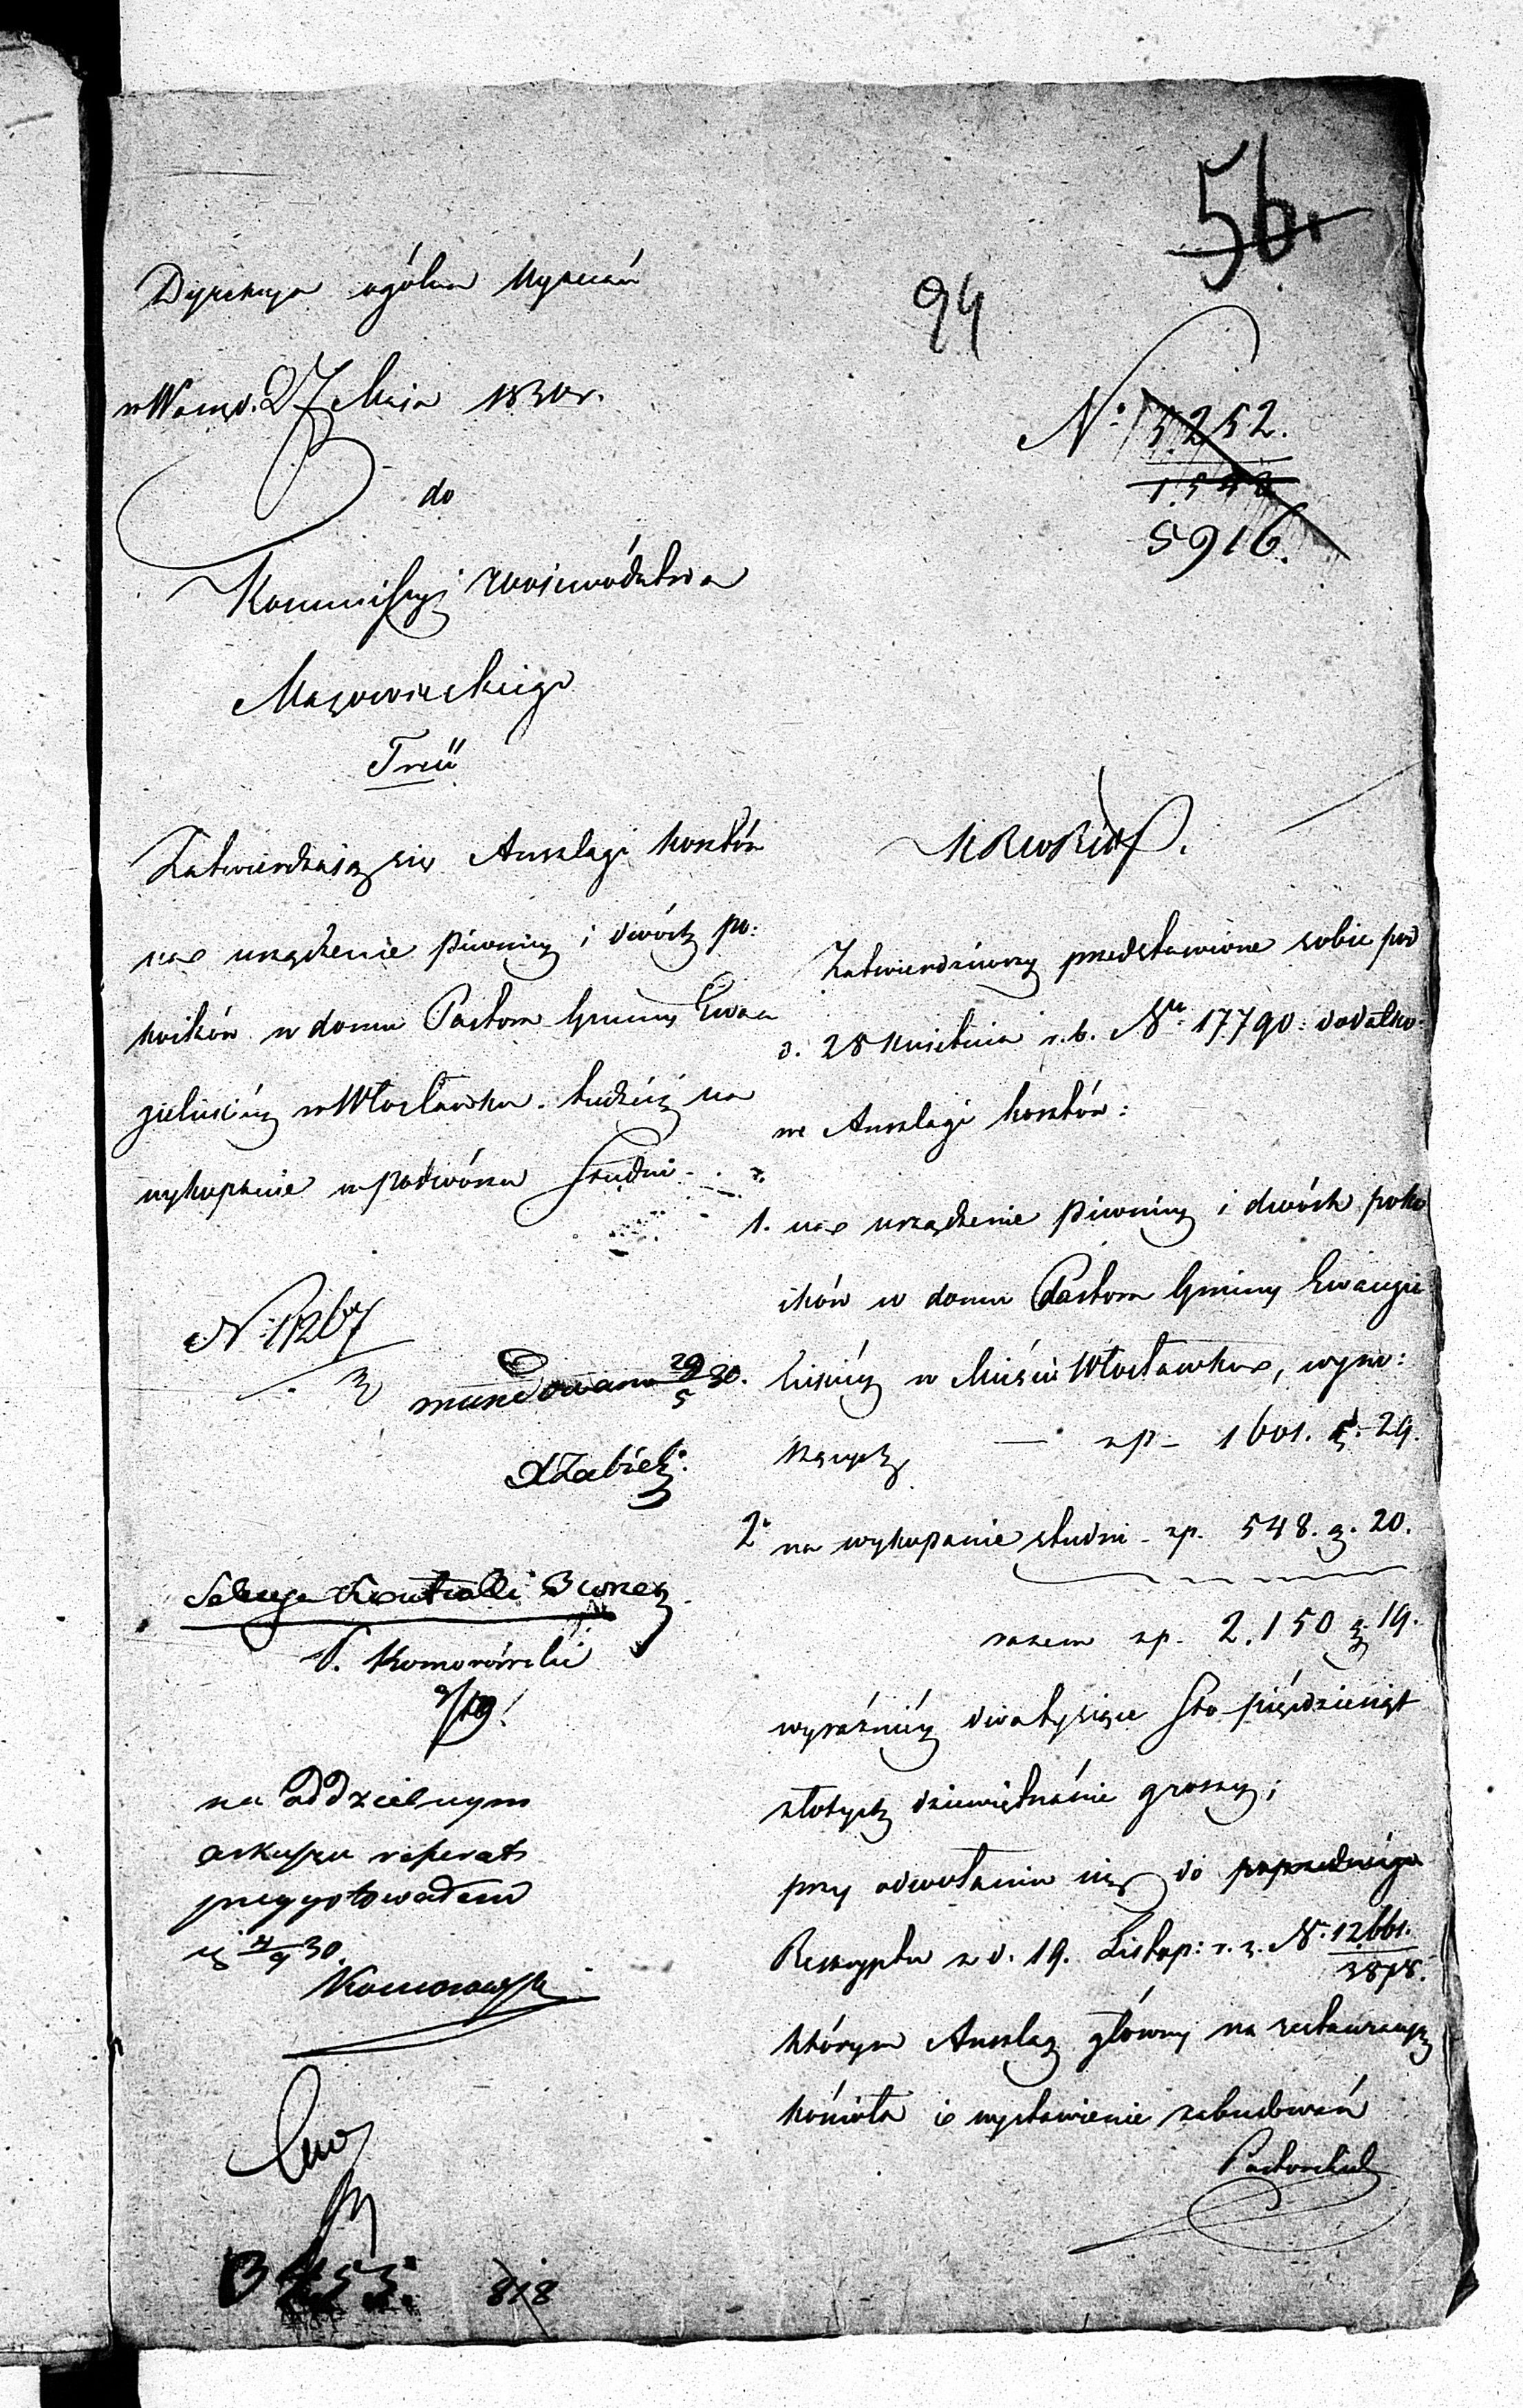 56.
94
Dyrekcya ogólna
w Warsz. 27 Maja 1830 r.
No 5252.
5916.
do
Kommissyi Woiewództwa
Mazowieckiego
Treść
Zatwierdzaią się Anszlagi kosztów
na urządzenie piwnicy i dwóch po:
koików w domu Pastora Gminy Ewan
gielickiéy w Włocławku. tudzież na
wykopanie w podwórzu Studni
No 11267
3
mundowano 29/5 30.
Sekcya Kontrolli
P. Komorowski
na oddzielnym
arkuszu referat
przygotowałem
9 30.
Komorowski
3455.
818
Zatwierdziwszy przedstawione sobie pod
d. 28 Kwietnia r. b. Nr 17790: dodatko-
we Anszlagi kosztów:
1. na urządzenie piwnicy i dwóch poko
ików w domu Pastora Gminy Ewangie
lickiéy w Mieście Włocławku, wyno:
szących — zp - 1601. g. 29.
2. na wykopanie studni - zp. 548. g. 20.
razem zp. 2.150 g. 19.
wyraźniéy dwa tysiące sto pięćdziesiąt
złotych dziewiętnaście groszy;
przy odwołaniu się do poprzedniego
Reskryptu z d. 19. Listop: r. z. N. 12661.
3878.
którym Anszlag główny na restauracyą
kościoła i wystawienie zabudowań
Pastorskich